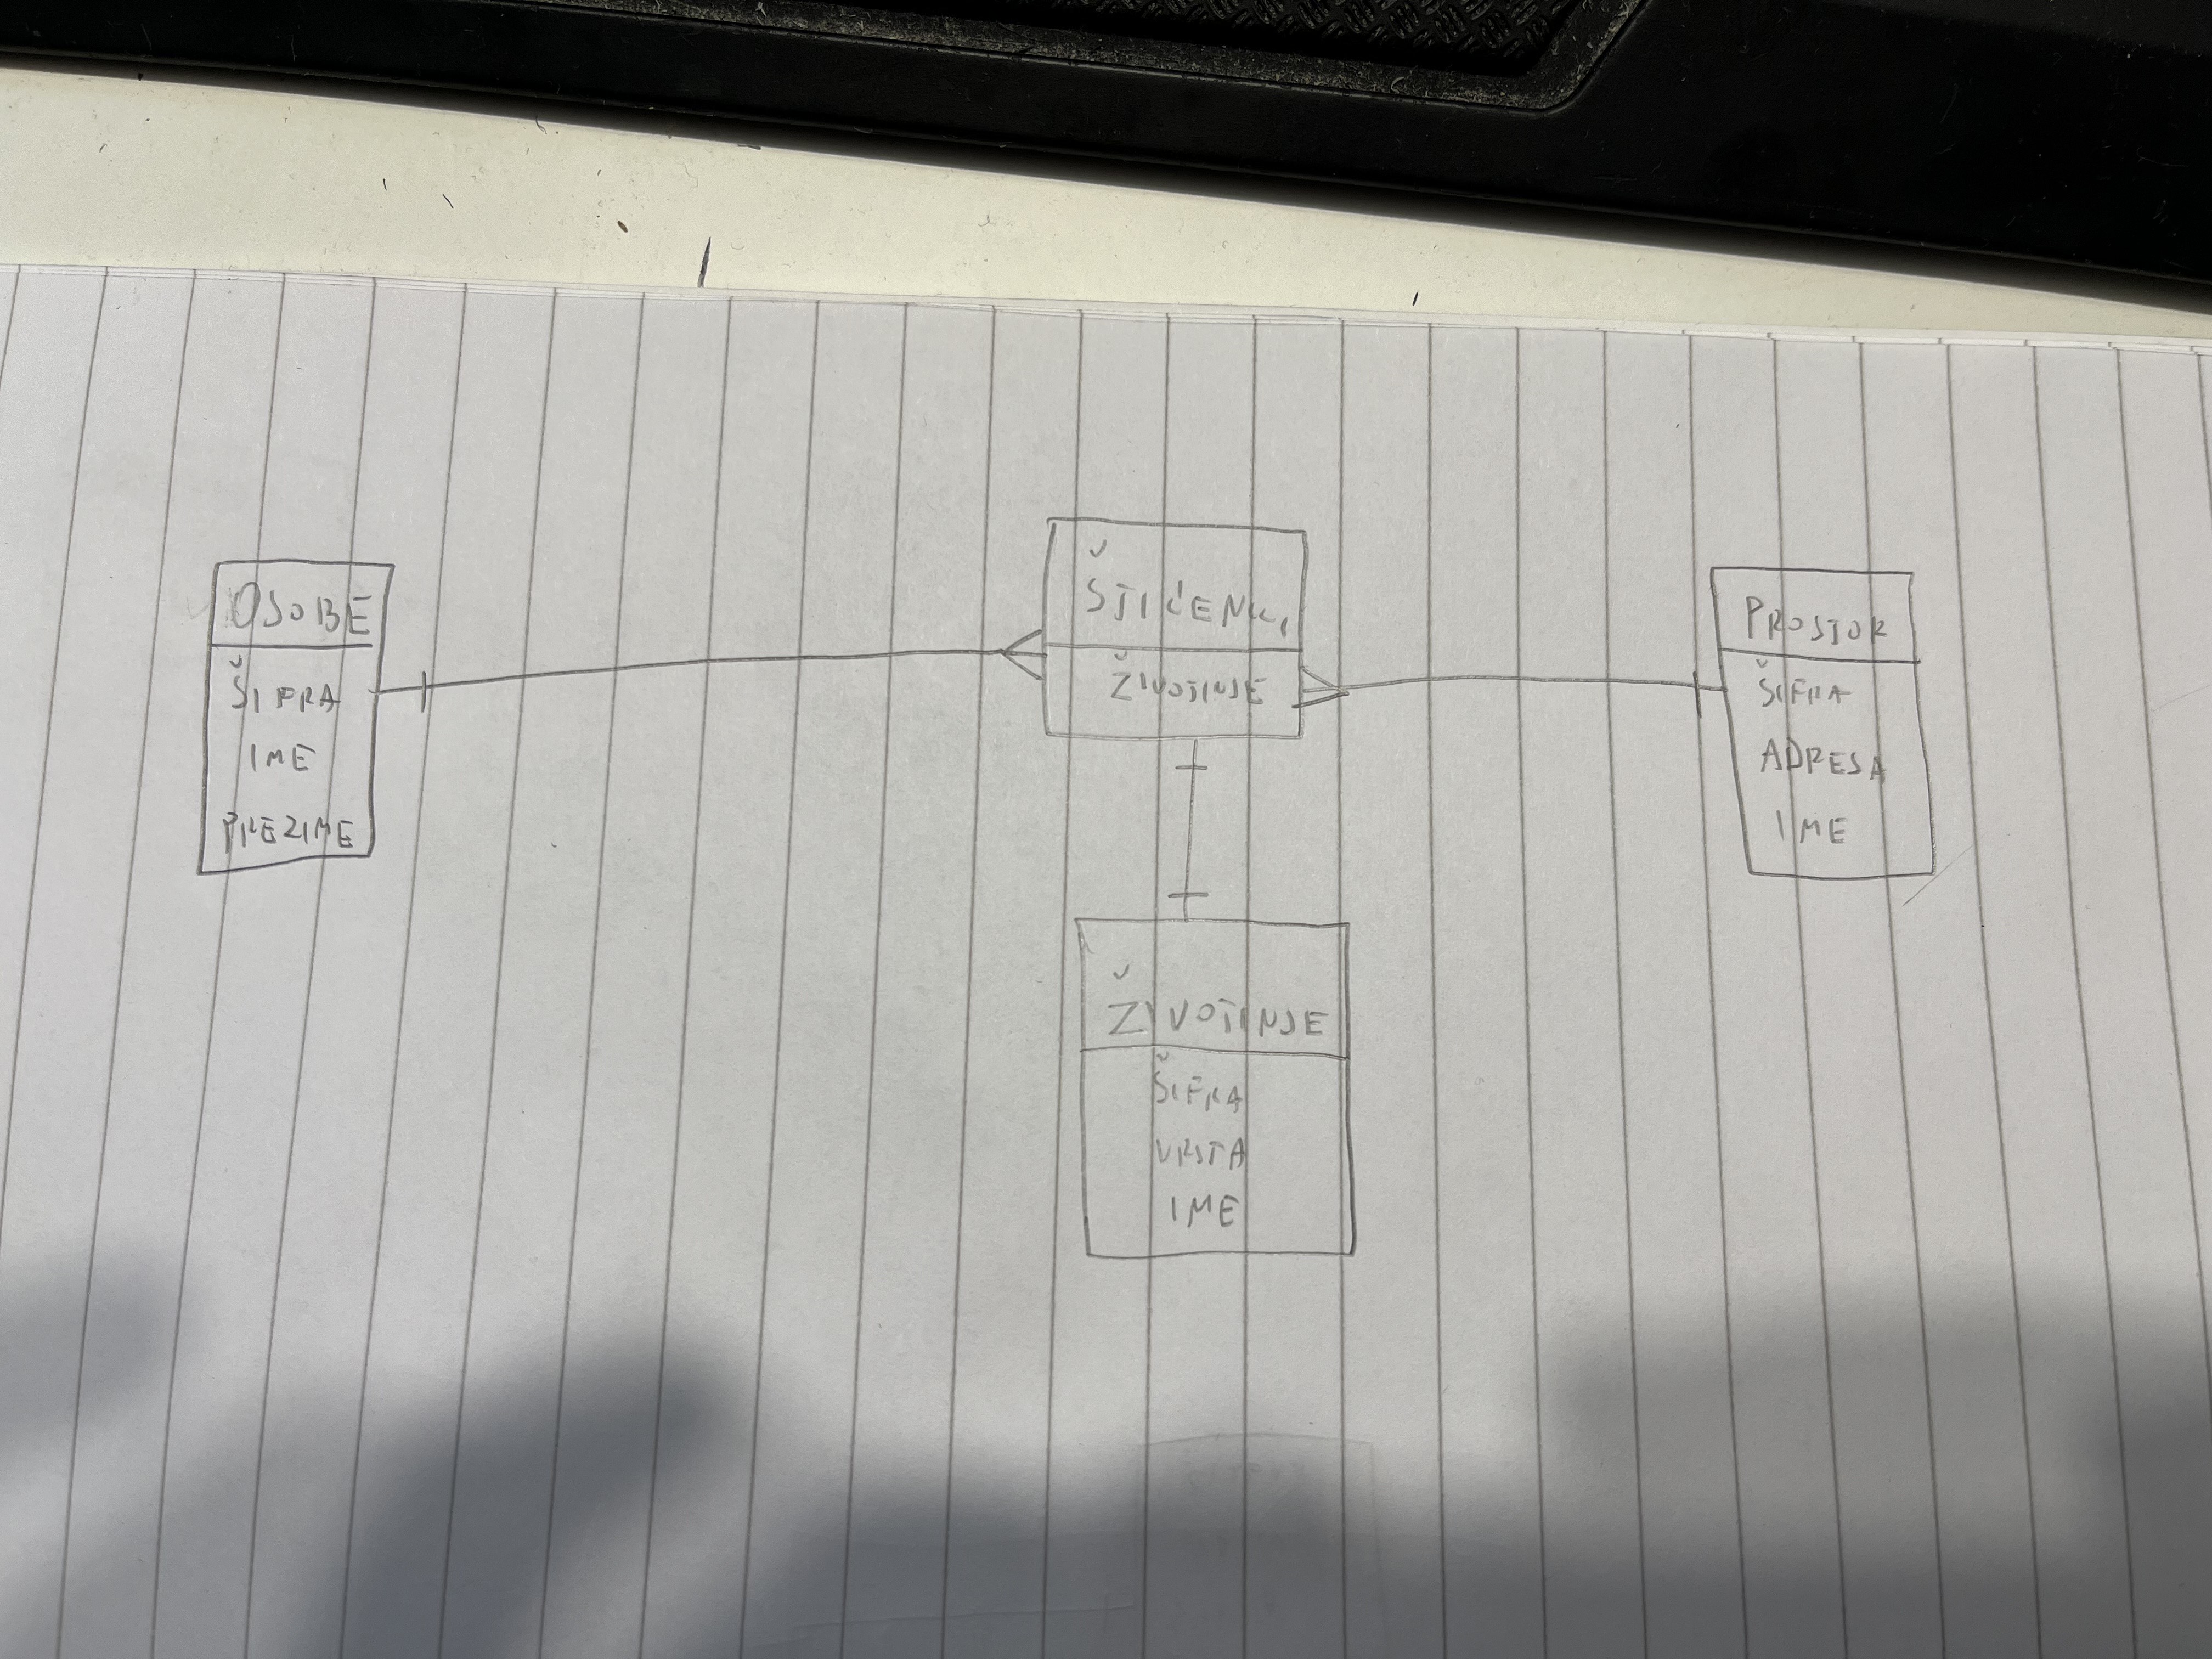 OSOBE
ŠIFRA
IME
PREZIME
ŠTIĆENICI
ŽIVOTINJE
PROSTOR
ŠIFRA
ADRESA
IME
ŽIVOTINJE
ŠIFRA
VRSTA
IME